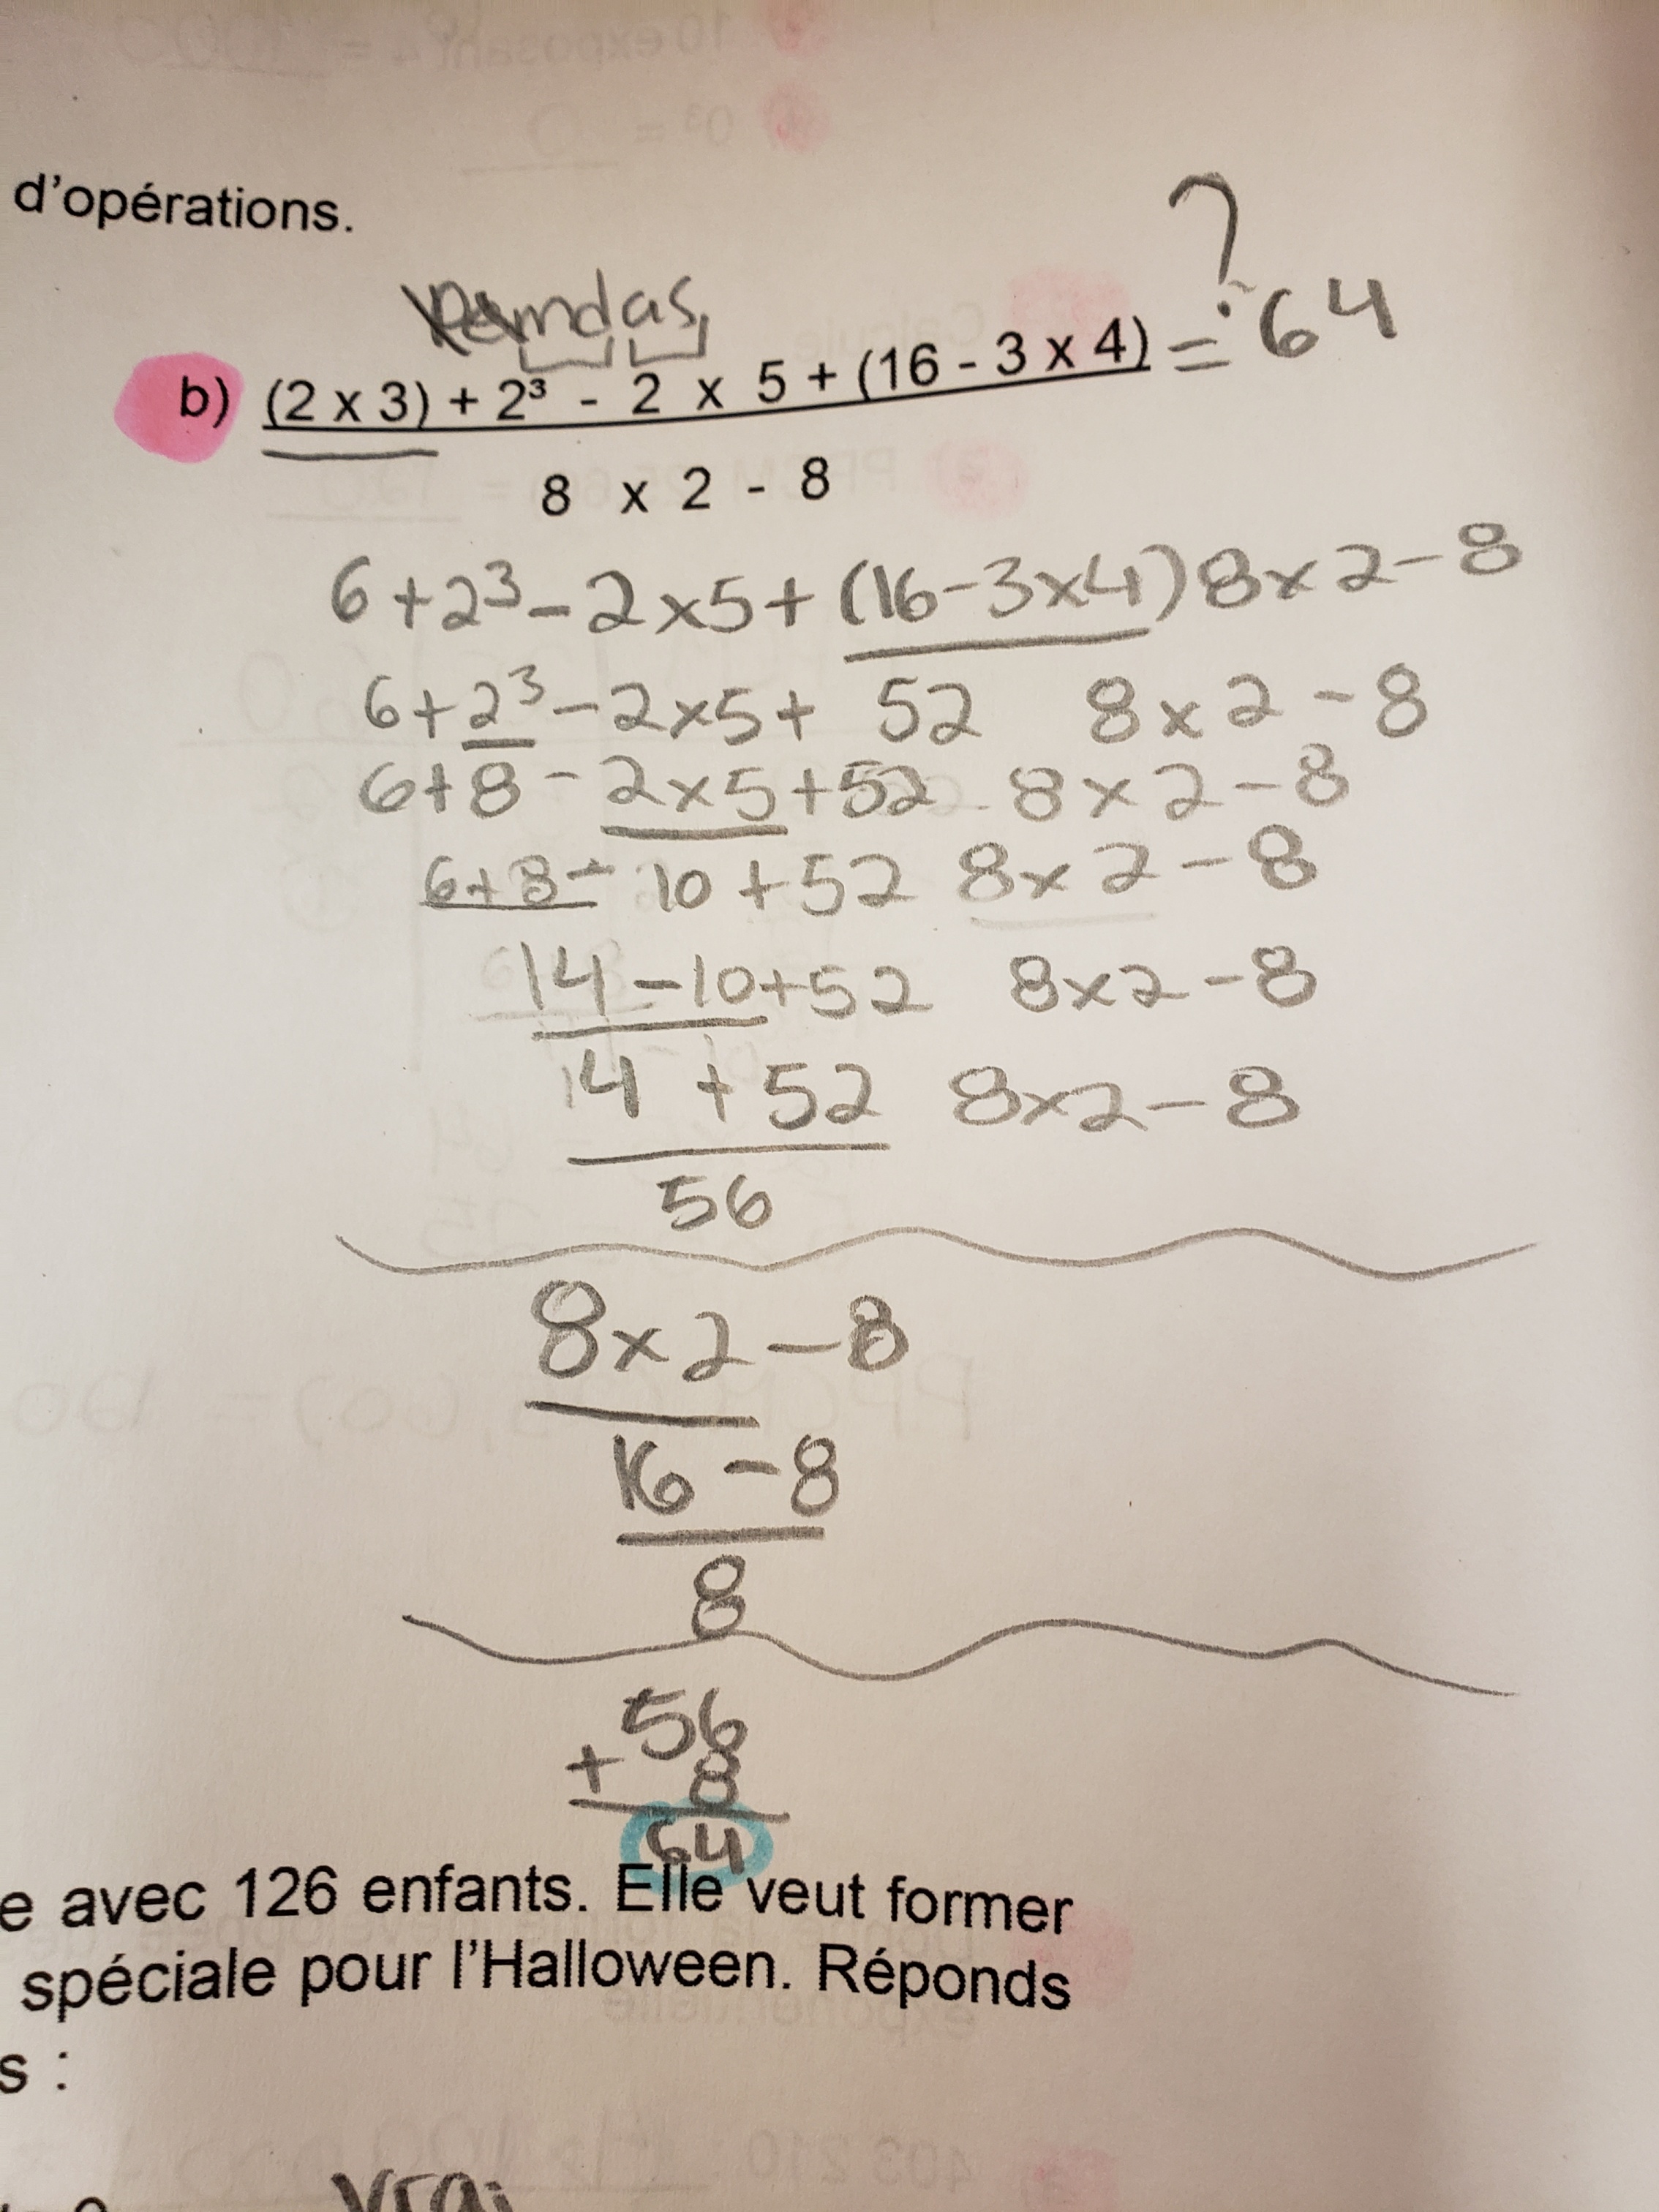 10 exposant 4 = 1000
0³ = 0
d'opérations.
?
Pemdas
b) (2 x 3) + 2³ - 2 x 5 + (16 - 3 x 4) = 64
8 x 2 - 8
6+2³-2x5+(16-3x4)8x2-8
6+2³-2x5+ 52 8x2-8
6+8-2x5+52 8x2-8
6+8-10+52 8x2-8
14-10+52 8x2-8
4+52 8x2-8
56
8x2-8
16-8
8
56
+ 8
64
e avec 126 enfants. Elle veut former
spéciale pour l'Halloween. Réponds
s :
vrai